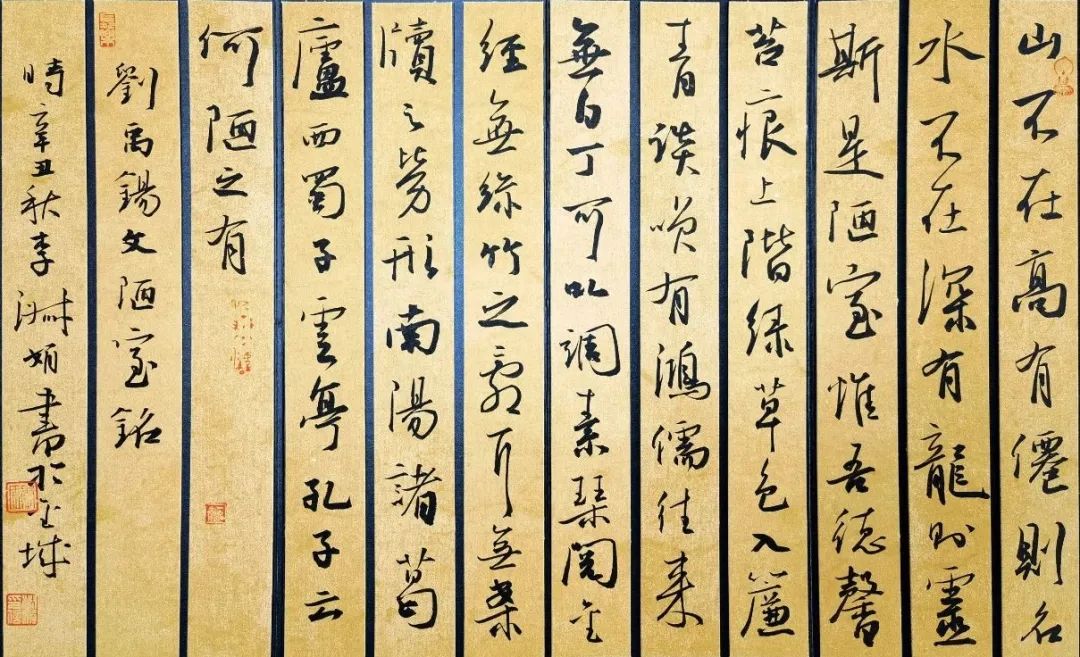 山不在高有僊則名
水不在深有龍則靈
斯是陋室惟吾德馨
苔痕上階綠草色入簾
青談笑有鴻儒往来
無白丁可以調素琴閱金
經無絲竹之亂耳無案
牘之勞形南陽諸葛
廬西蜀子雲亭孔子云
何陋之有
劉禹錫文陋室銘
時辛丑秋李淑娟書於金城